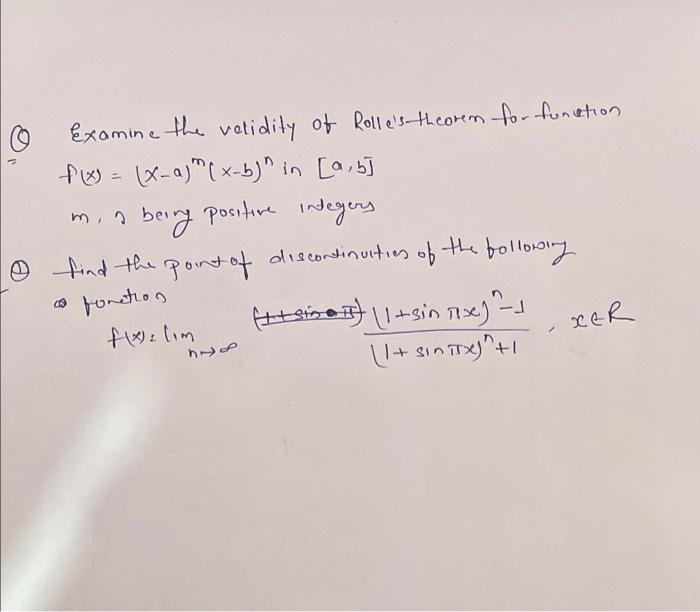 Q Examine the validity of Rolle's theorem for function
f(x) = (x-a)^m (x-b)^n in [a,b]
m, n being positive integers
Q find the point of discontinuities of the following
function
f(x) = lim n→∞ ((1+sin πx)^n - 1) / ((1+ sin πx)^n + 1) , x∈R